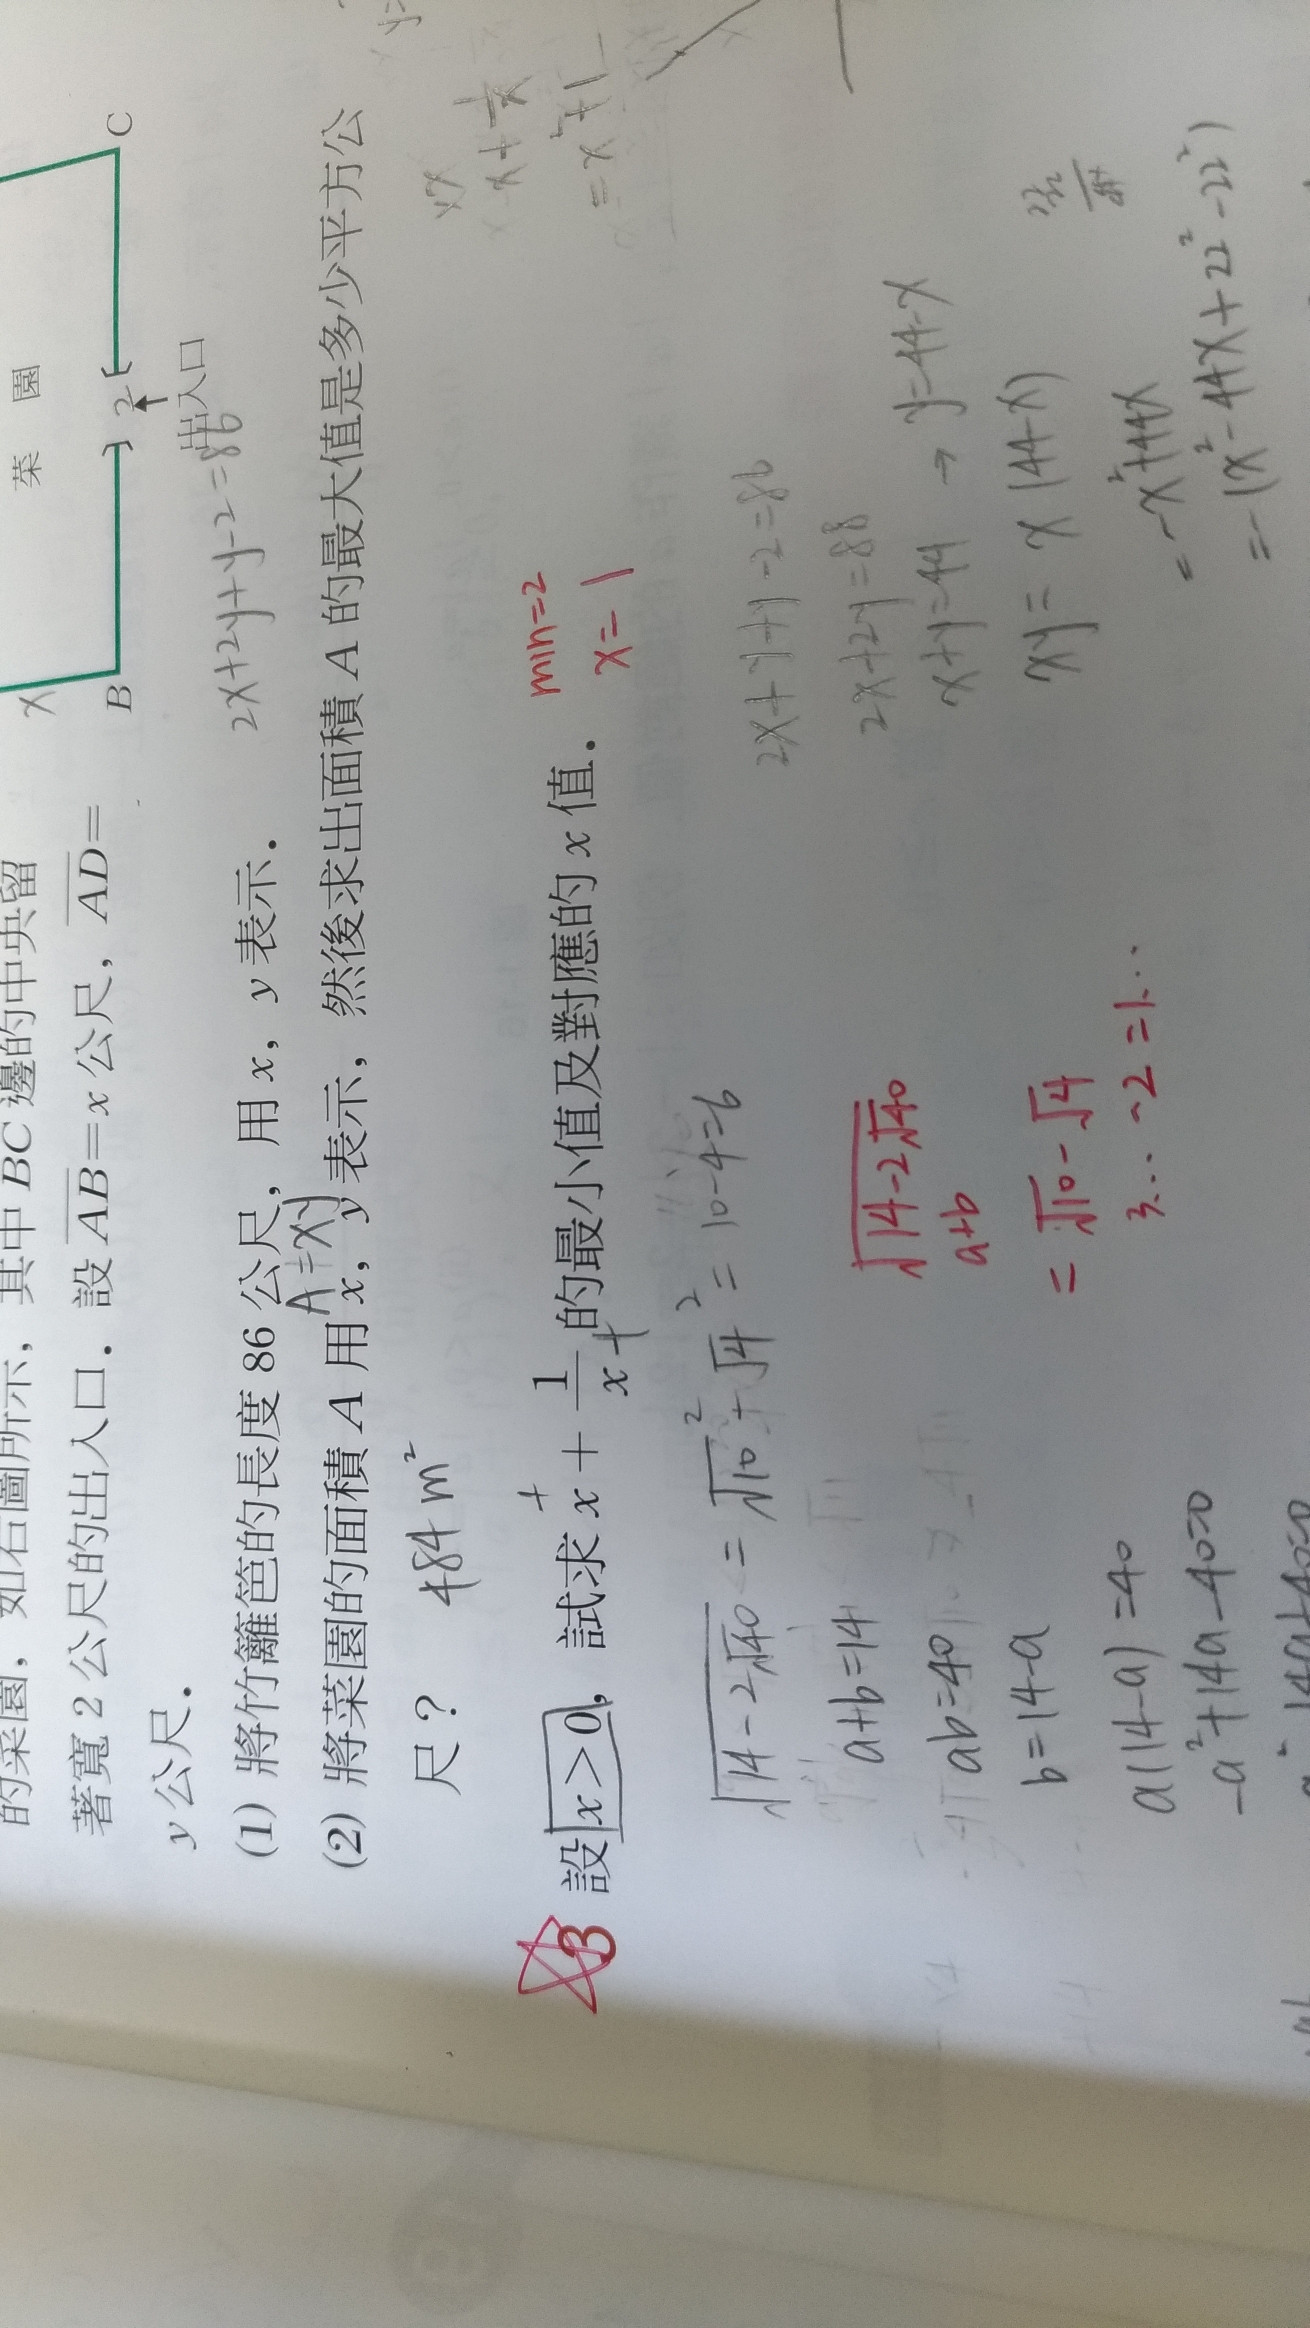 菜 園
的菜園，如右圖所示，其中 BC 邊的中央留
x
著寬 2 公尺的出入口．設 AB=x 公尺，AD=
B 2 C
出入口
y 公尺．
(1) 將竹籬笆的長度 86 公尺，用 x，y 表示．
2x+2y+y-2=86
A=xy
(2) 將菜園的面積 A 用 x，y 表示，然後求出面積 A 的最大值是多少平方公
尺？ 484 m²
x+1/x
=x²+1
3 設 x>0，試求 x+1/x 的最小值及對應的 x 值．
min=2
x=1
√(14-2√40) = √10²+√4² = 10-4=6
a+b=14
ab=40
b=14-a
a(14-a)=40
-a²+14a-40=0
√(14-2√40)
a+b
=√10-√4
3...-2=1...
2x+y+y-2=86
2x+2y=88
x+y=44 → y=44-x
xy=x(44-x)
=-x²+44x
=-(x²-44x+22²-22²)